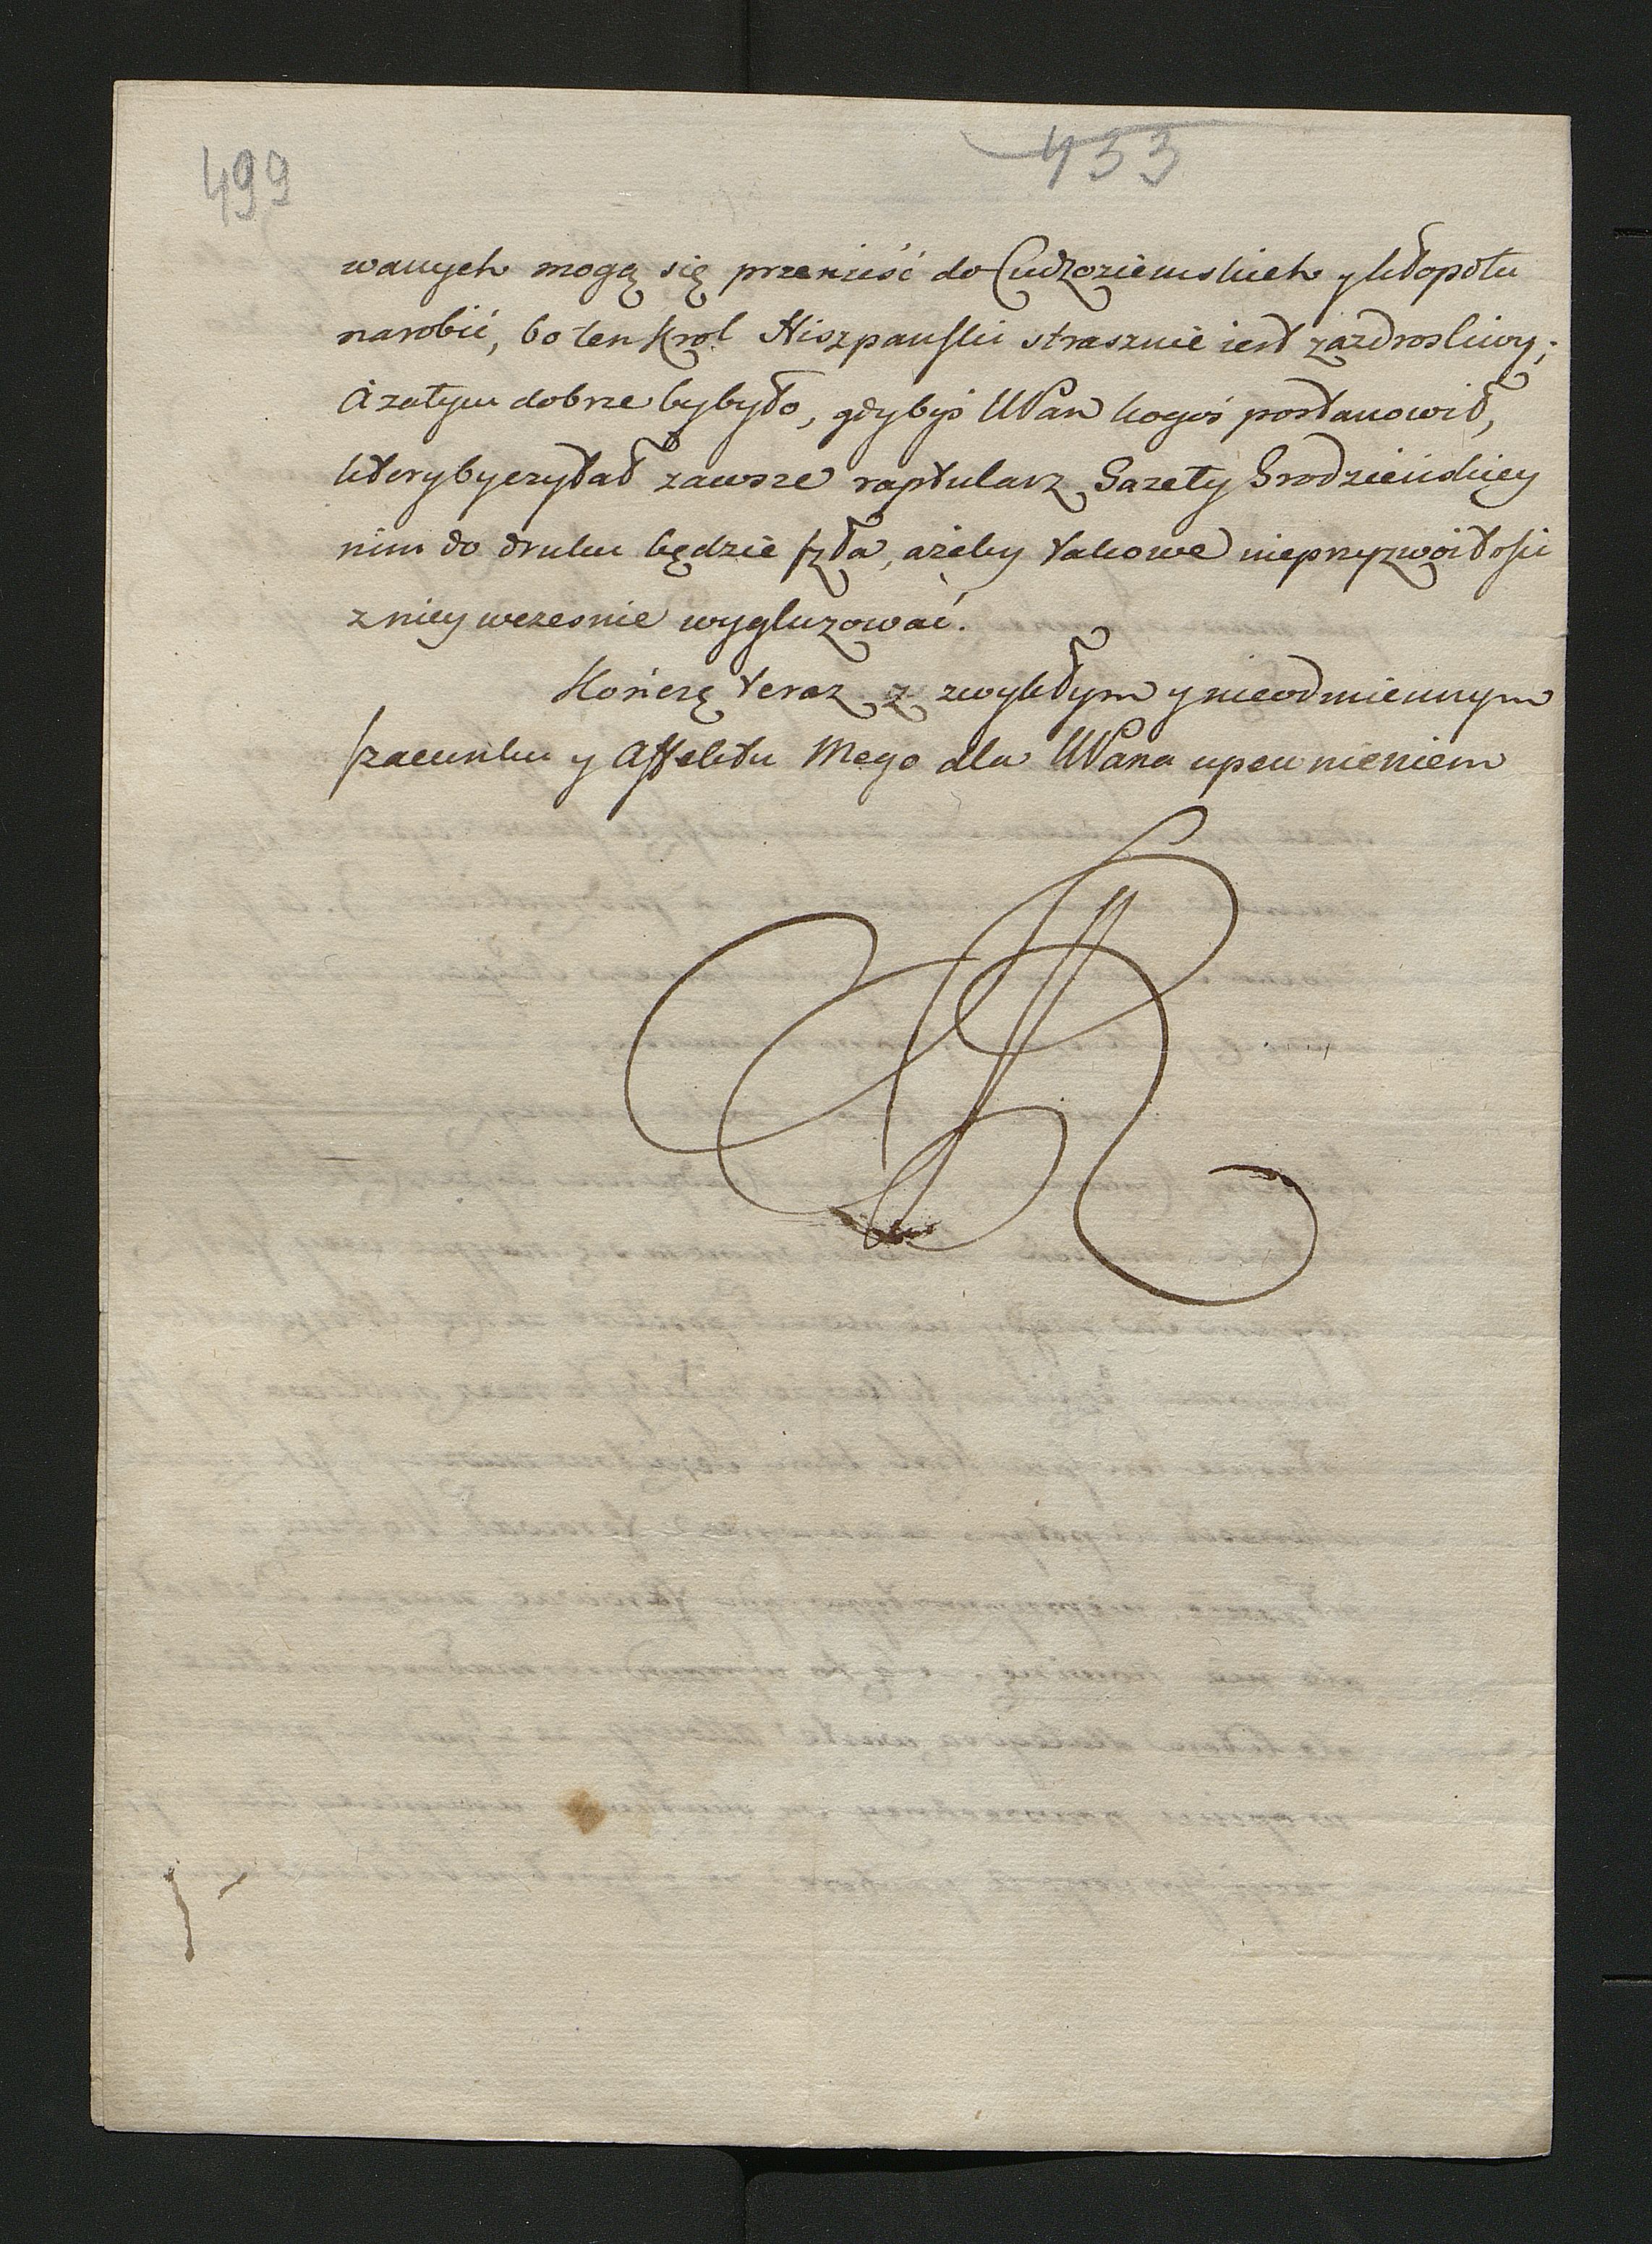 499
433
wanych mogą się przenieść do Cudzoziemskich y kłopotu
narobić, bo ten Krol Hiszpański strasznie iest zazdrosliwy;
A zatym dobrze by było, gdybyś WPan kogoś postanowił,
ktoryby czytał zawsze raptularz Gazety Grodzieńskiey
nim do druku będzie szła, ażeby takowe nieprzyzwoitości
z niey wczesnie wygluzować.
Kończę teraz z zwykłym y nieodmiennym
szacunku y Affektu Mego dla WPana upewnieniem